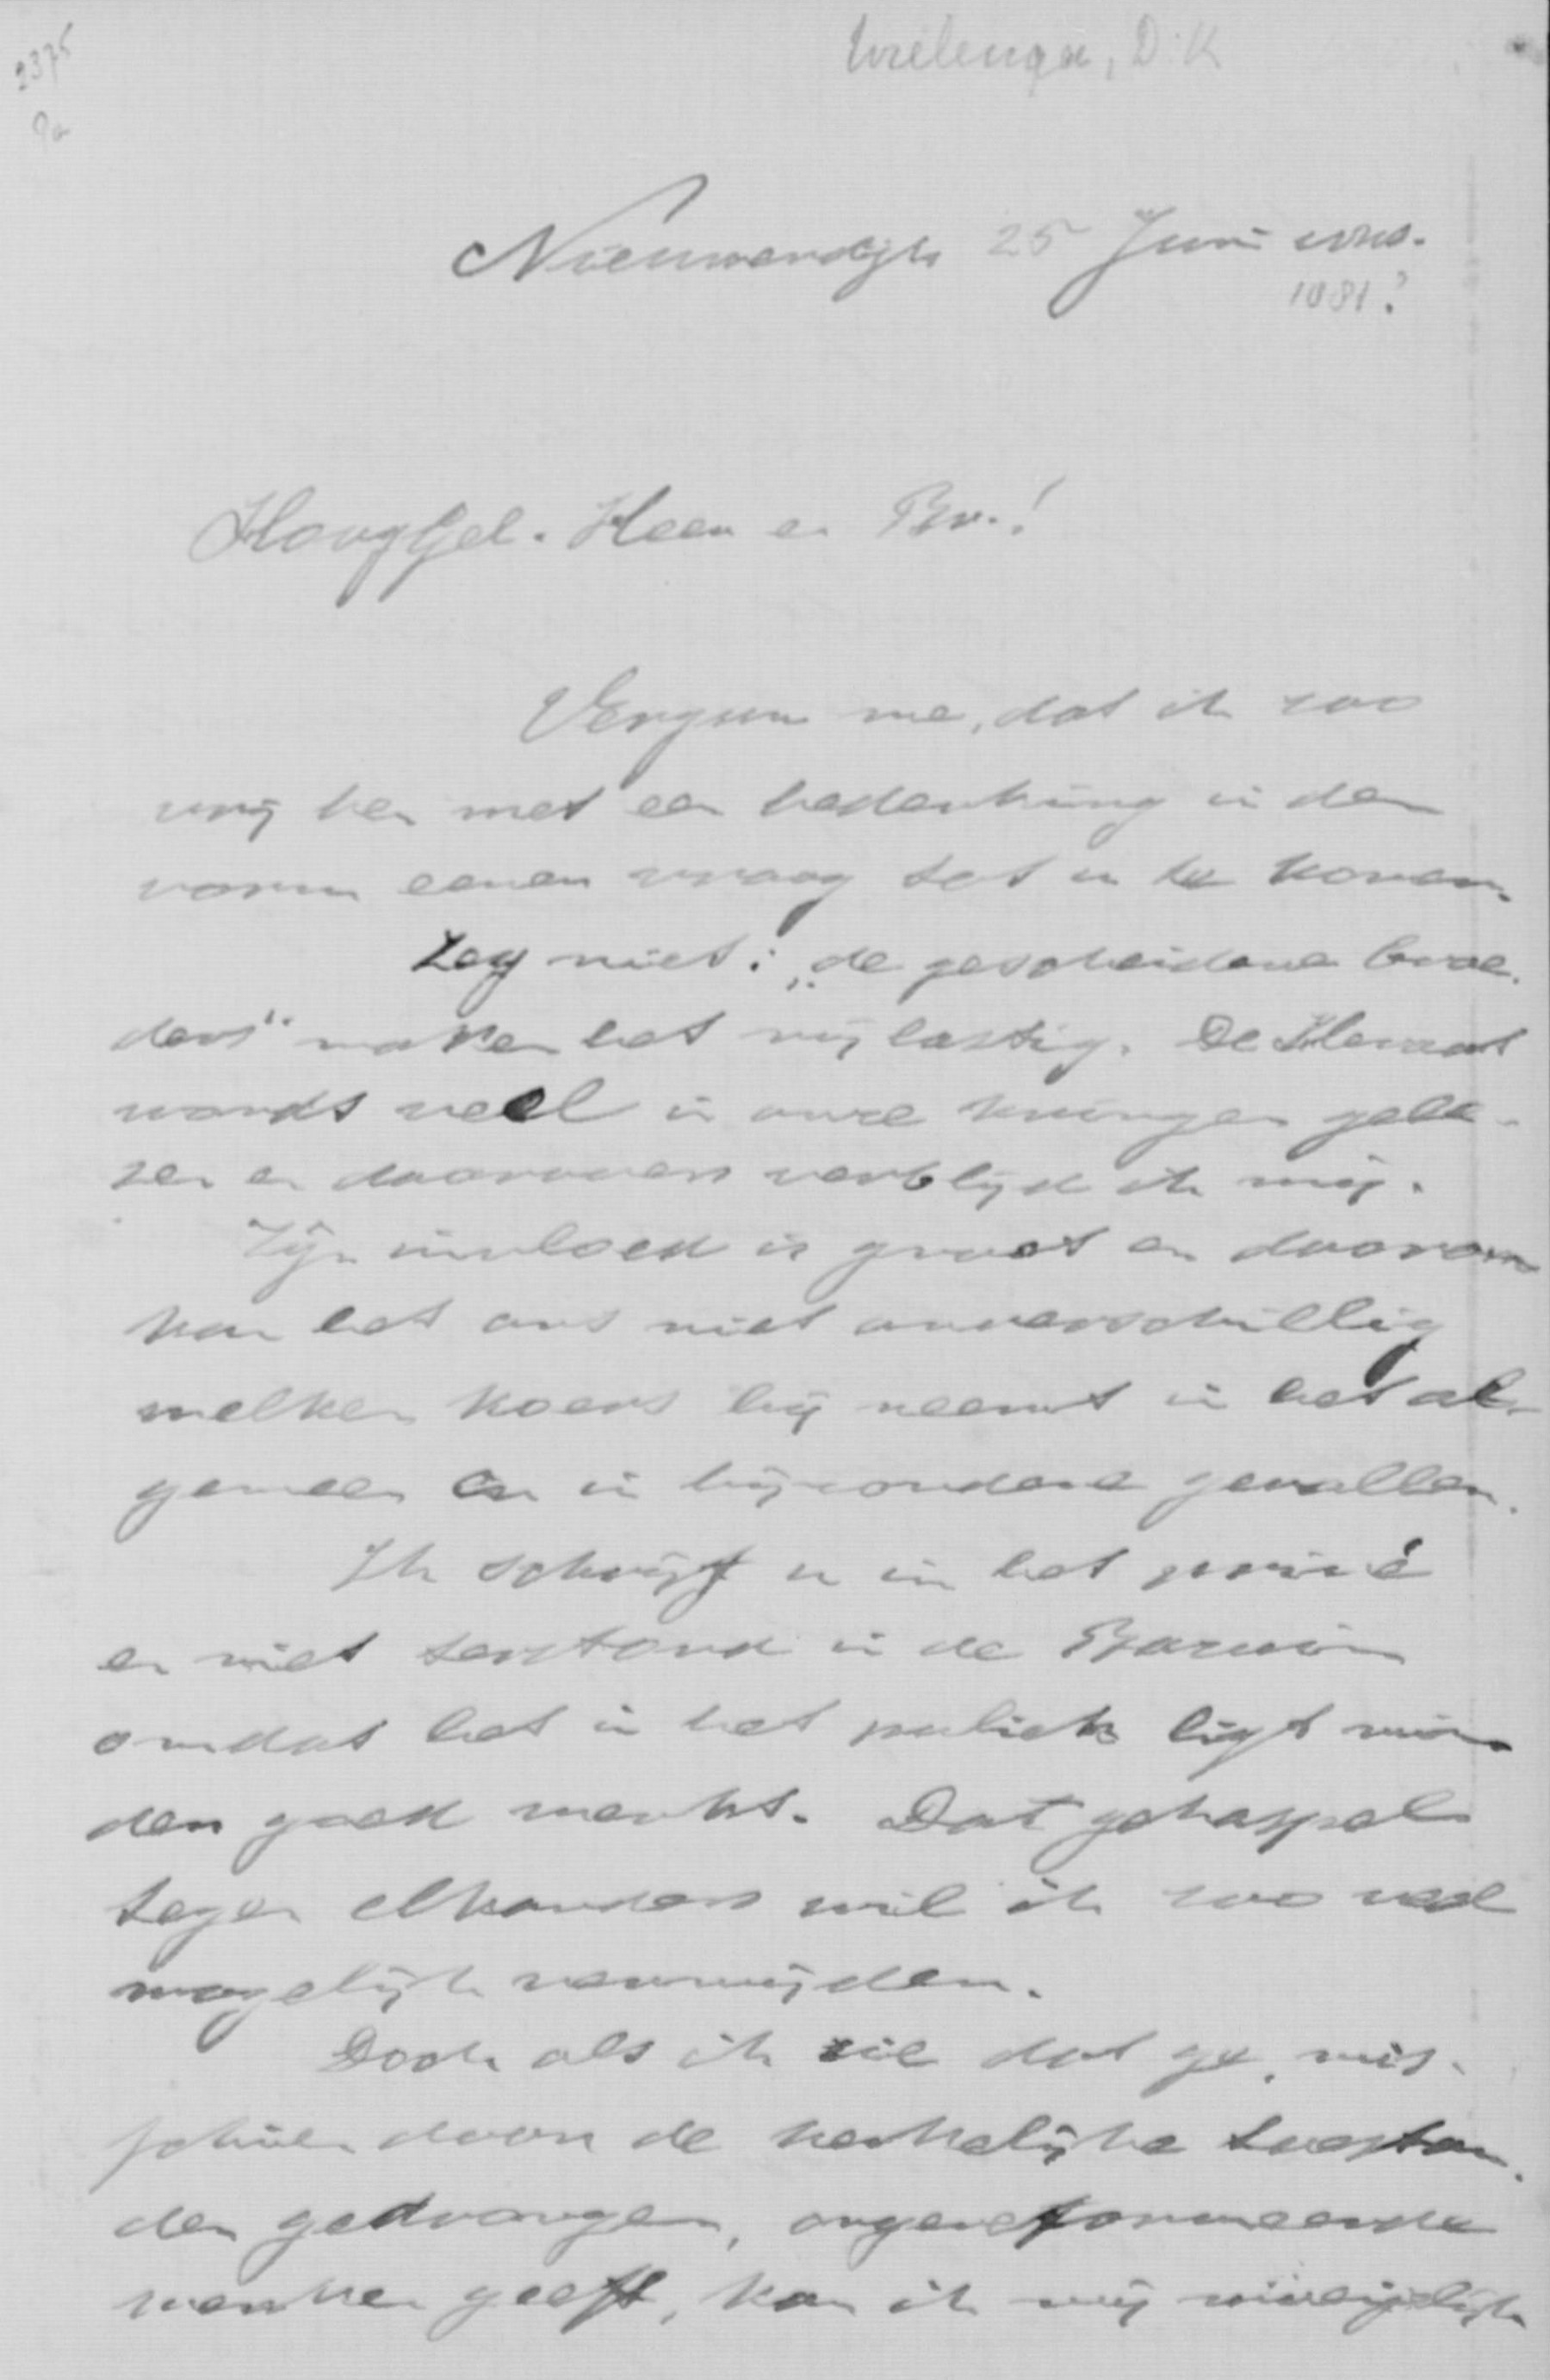 Wielenga, D.K
2375
9a
Nieuwendijk 25 Juni
1881?
HoogGel. Heer en Br.!
Vergun me, dat ik zoo
vrij ben met een bedenking in den
vorm eener vraag tot u te komen.
Zeg niet: "de gescheidene broe-
ders" maken het mij lastig. De Heraut
wordt veel in onze kringen gele-
zen en daarover verblijd ik mij.
Zijn invloed is groot en daarom
kan het ons niet onverschillig
welken koers hij neemt in het al-
gemeen en in bijzondere gevallen.
Ik schrijf u in het privé
en niet terstond in de Bazuin
omdat het in het publiek ligt min-
der goed werkt. Dat gehaspel
tegen elkander wil ik zoo veel
mogelijk vermijden.
Doch als ik zie dat ge, mis-
schien door de kerkelijke toestan-
den gedrongen, ongereformeerde
wenken geeft, kan ik mij